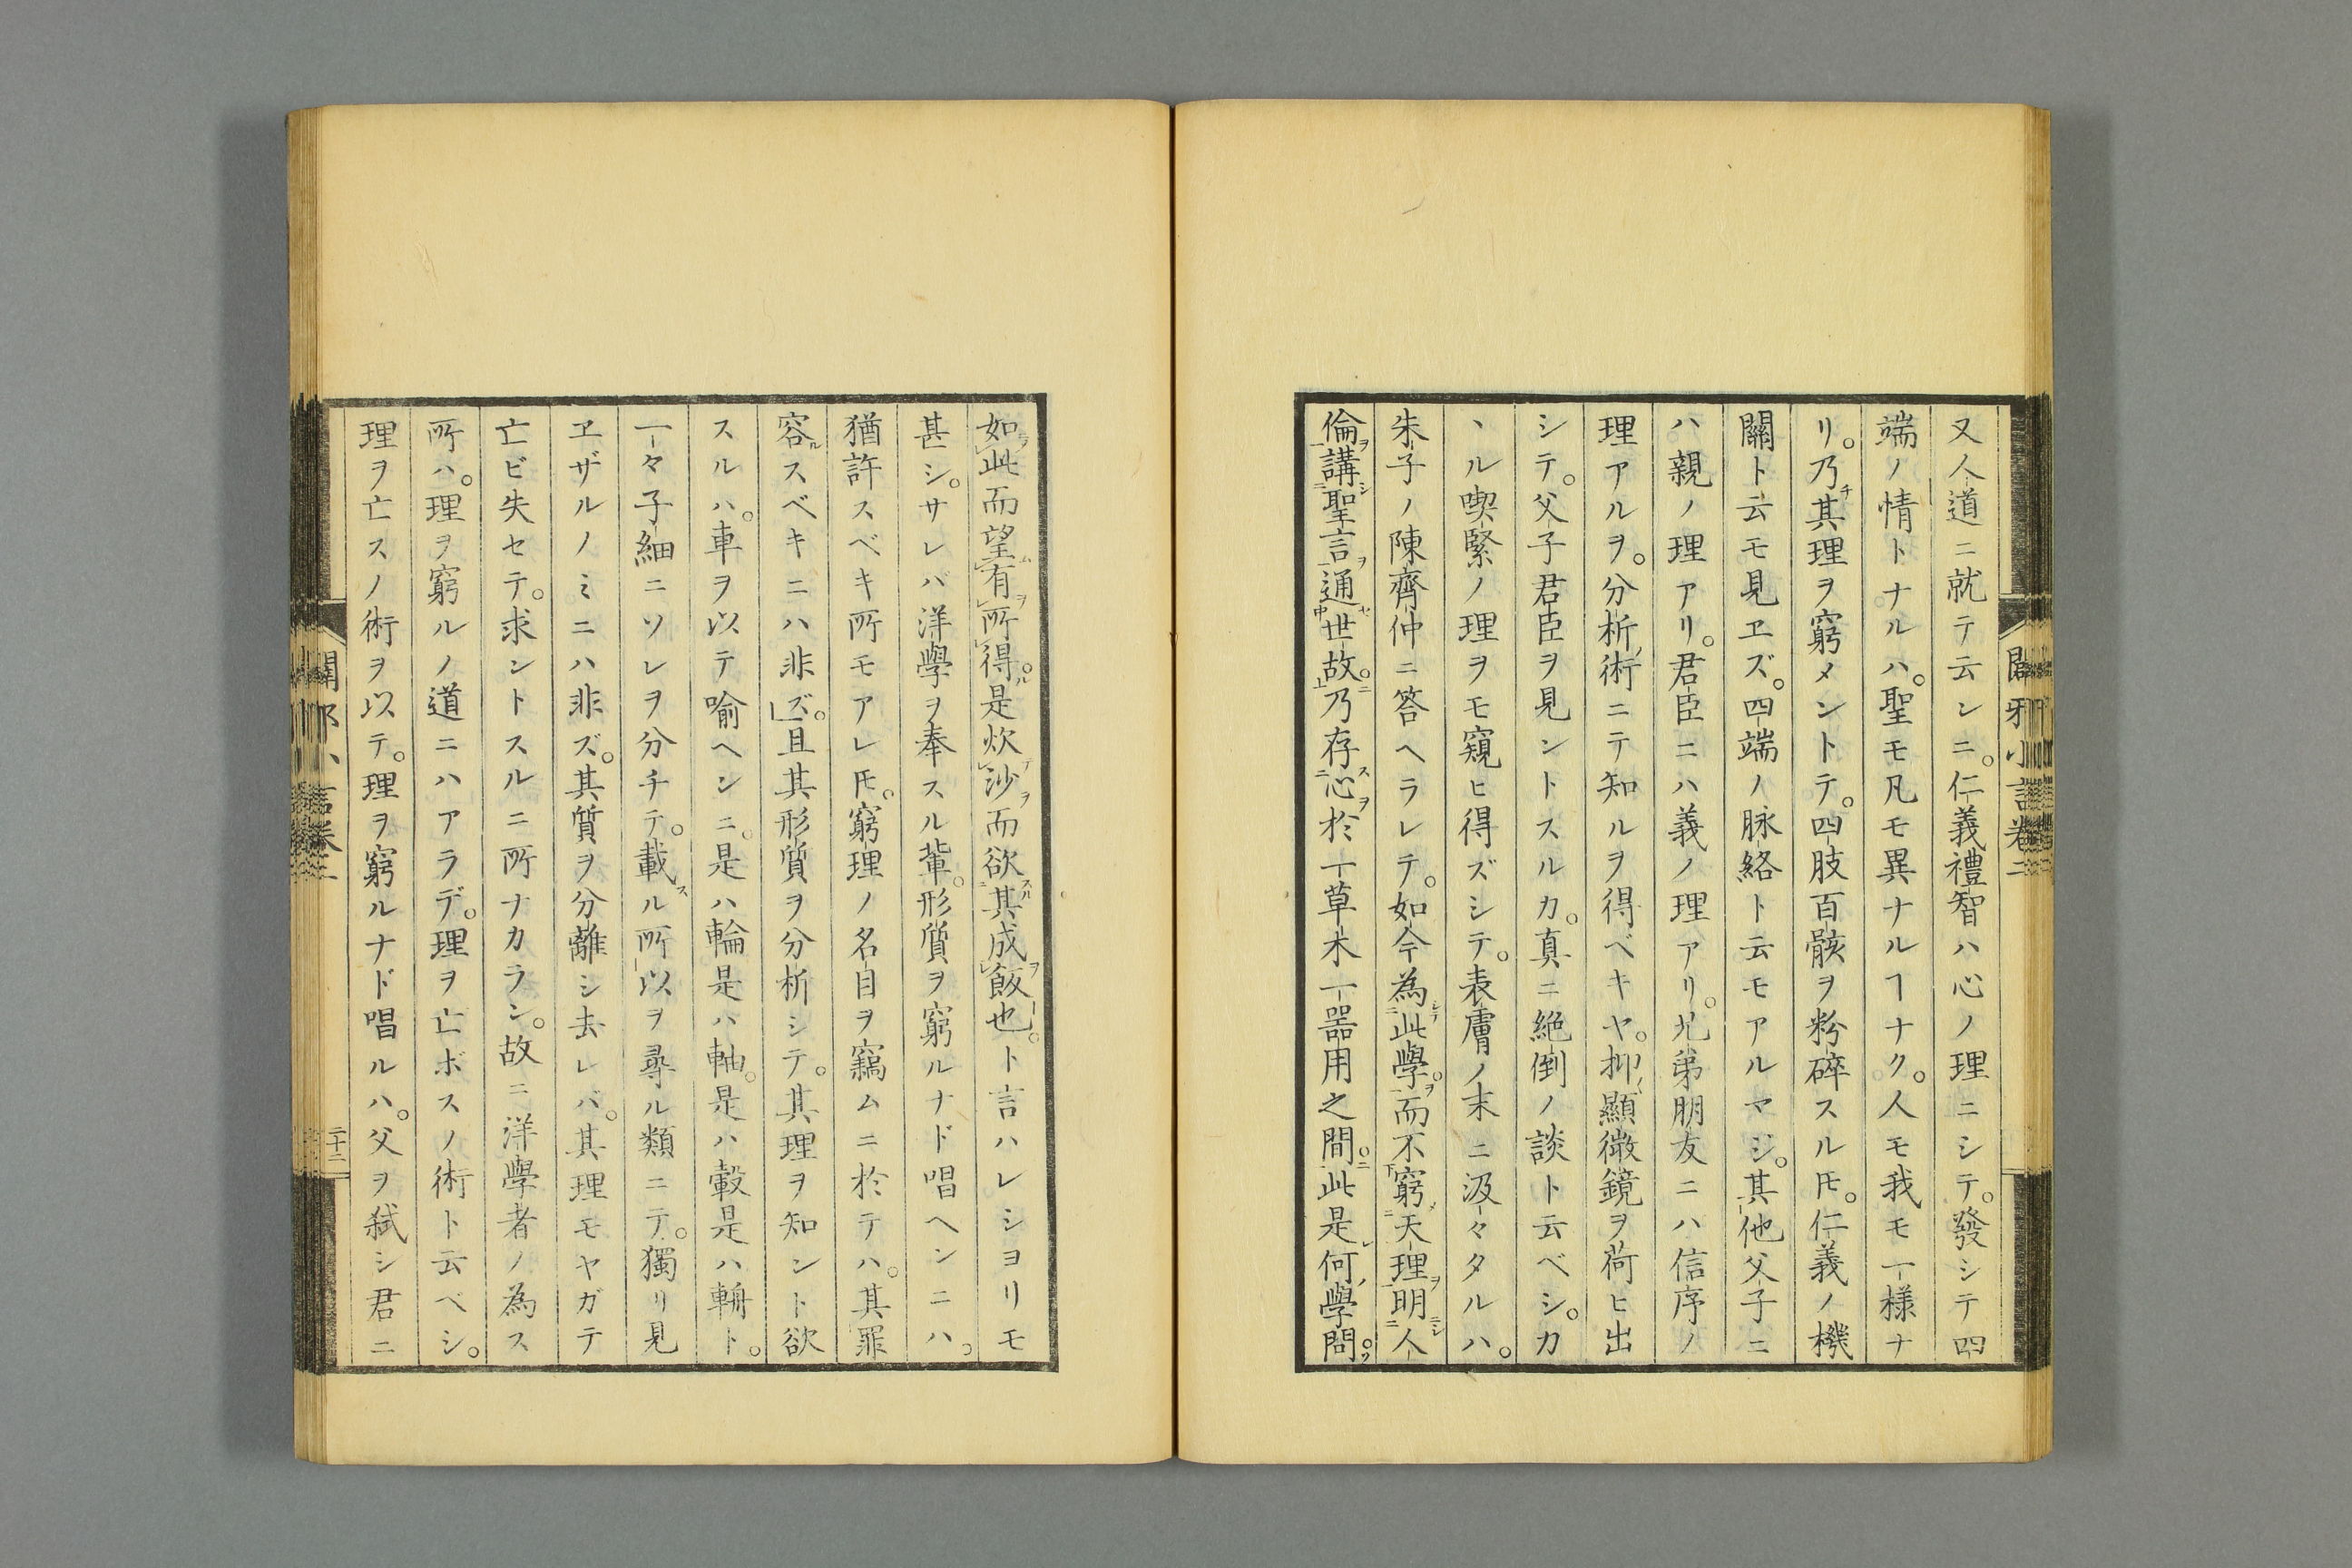 又人道ニ就テ云ンニ。仁義禮智ハ心ノ理ニシテ。發シテ四
端ノ情トナルハ。聖モ凡モ異ナルヿナク。人モ我モ一樣ナ
リ。乃チ其理ヲ窮メントテ。四肢百骸ヲ粉碎スルㇳモ。仁義ノ機
關ト云モ見ヱズ。四端ノ脉絡ト云モアルマジ。其他父子ニ
ハ親ノ理アリ。君臣ニハ義ノ理アリ。兄弟朋友ニハ信序ノ
理アルヲ。分析ノ術ニテ知ルヲ得ベキヤ。抑〱顯微鏡ヲ荷ヒ出
シテ。父子君臣ヲ見ントスルカ。真ニ絶倒ノ談ト云ベシ。カ
ヽル喫緊ノ理ヲモ窺ヒ得ズシテ。表膚ノ末ニ汲々タルハ。
朱子ノ陳齊仲ニ答ヘラレテ。如今為此學。而不窮天理明人
倫講聖言通世故。乃存心於一草木一器用之間。此是何學問。
闢邪小言卷二
如此而望有所得。是炊沙而欲其成飯也。ト言ハレシヨリモ
甚シ。サレバ洋學ヲ奉スル輩。形質ヲ窮ルナド唱ヘンニハ。
猶許スベキ所モアレㇳモ。窮理ノ名目ヲ竊ムニ於テハ。其罪
容ルスベキニハ非ズ。且其形質ヲ分析シテ。其理ヲ知ント欲
スルハ。車ヲ以テ喻ヘンニ。是ハ輪是ハ軸。是ハ轂是ハ輈ト。
一々子細ニソレヲ分チテ。載スル所以ヲ尋ル類ニテ。獨リ見
ヱザルノミニハ非ズ。其質ヲ分離シ去レバ。其理モヤガテ
亡ビ失セテ。求ントスルニ所ナカラン。故ニ洋學者ノ為ス
所ハ。理ヲ窮ルノ道ニハアラデ。理ヲ亡ボスノ術ト云ベシ。
理ヲ亡スノ術ヲ以テ。理ヲ窮ルナド唱ルハ。父ヲ弑シ君ニ
二十二